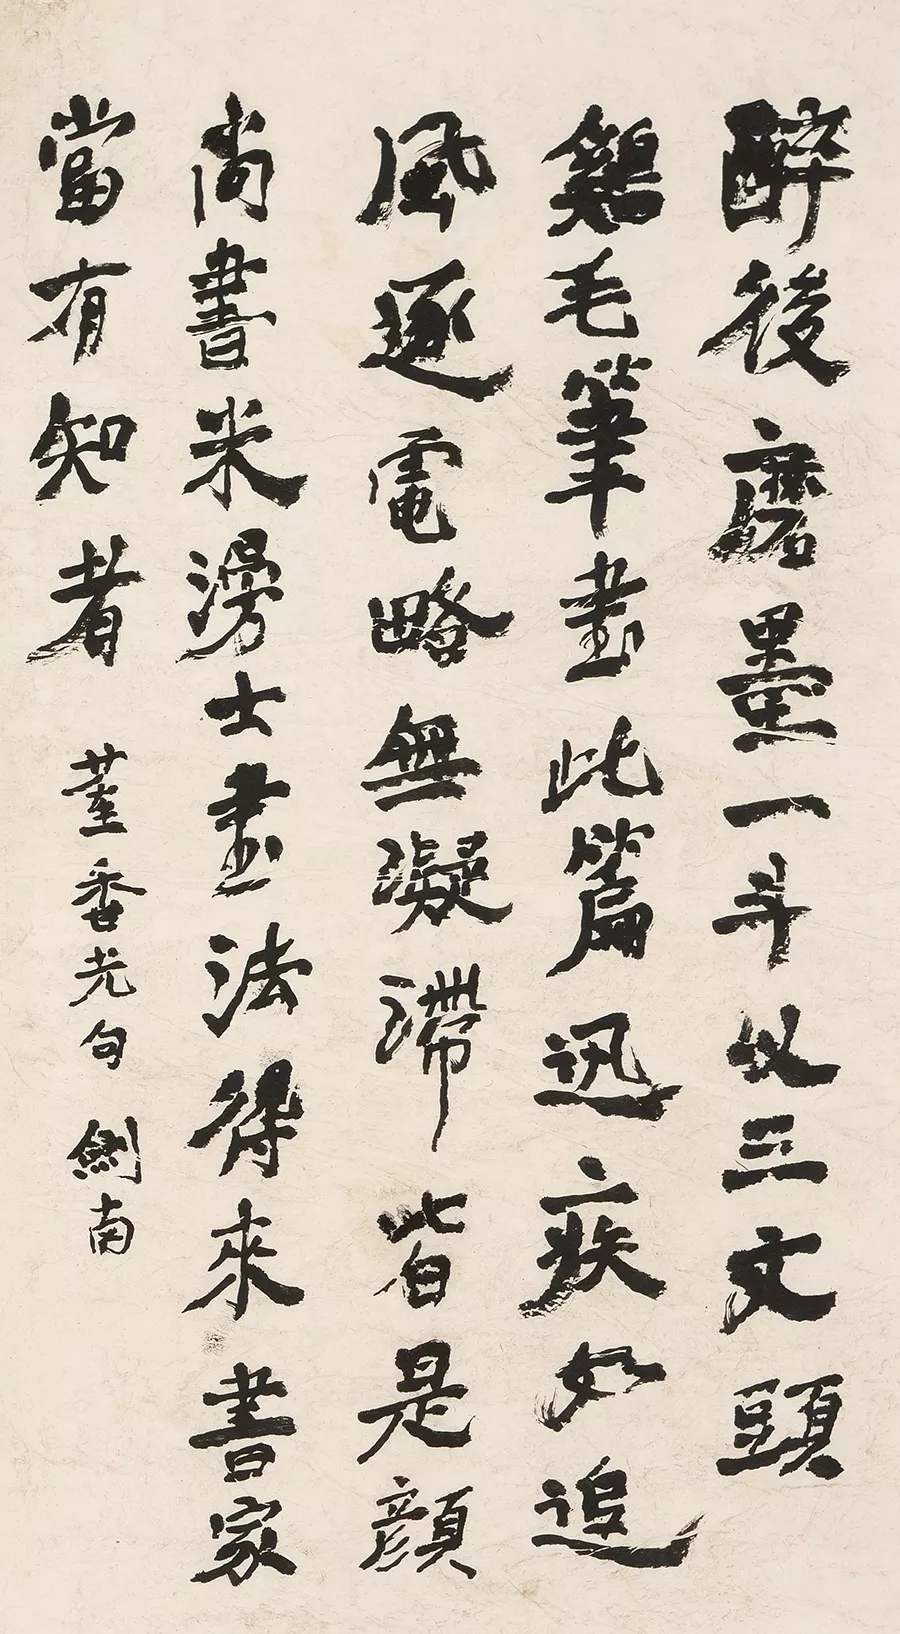 醉後磨墨一斗以三文頭
鷄毛筆畫此篇迅疾如追
風逐電略無凝滯皆是顔
尚書米澷士畫法得來書家
當有知者
董香光句 劍南